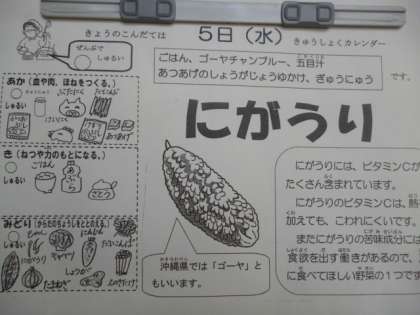 きょうのこんだては
5日（水）
きゅうしょくカレンダー
ぜんぶで
しゅるい
ごはん、ゴーヤチャンプルー、五目汁
あつあげのしょうがじょうゆかけ、ぎゅうにゅう
です。
にがうり
あか（血や肉、ほねをつくる。）
しゅるい
き（ねつや力のもとになる。）
ごはん
しゅるい
あぶら
さとう
みどり（からだのちょうしをととのえる）
しゅるい
しょうが
たまねぎ
沖縄県では「ゴーヤ」と
もいいます。
にがうりには、ビタミンCが
たくさん含まれています。
にがうりのビタミンCは、熱
加えても、こわれにくいです。
またにがうりの苦味成分には
食欲を出す働きがあるので、
に食べてほしい野菜の1つです